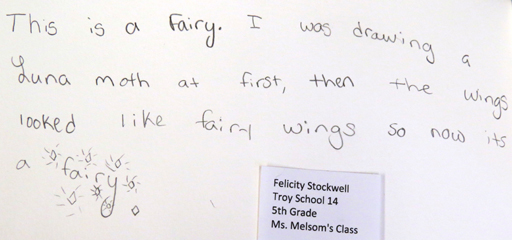 This is a Fairy. I was drawing a
Luna moth at first, then the wings
looked like fairy wings so now its
a fairy
Felicity Stockwell
Troy School 14
5th Grade
Ms. Melsom's Class